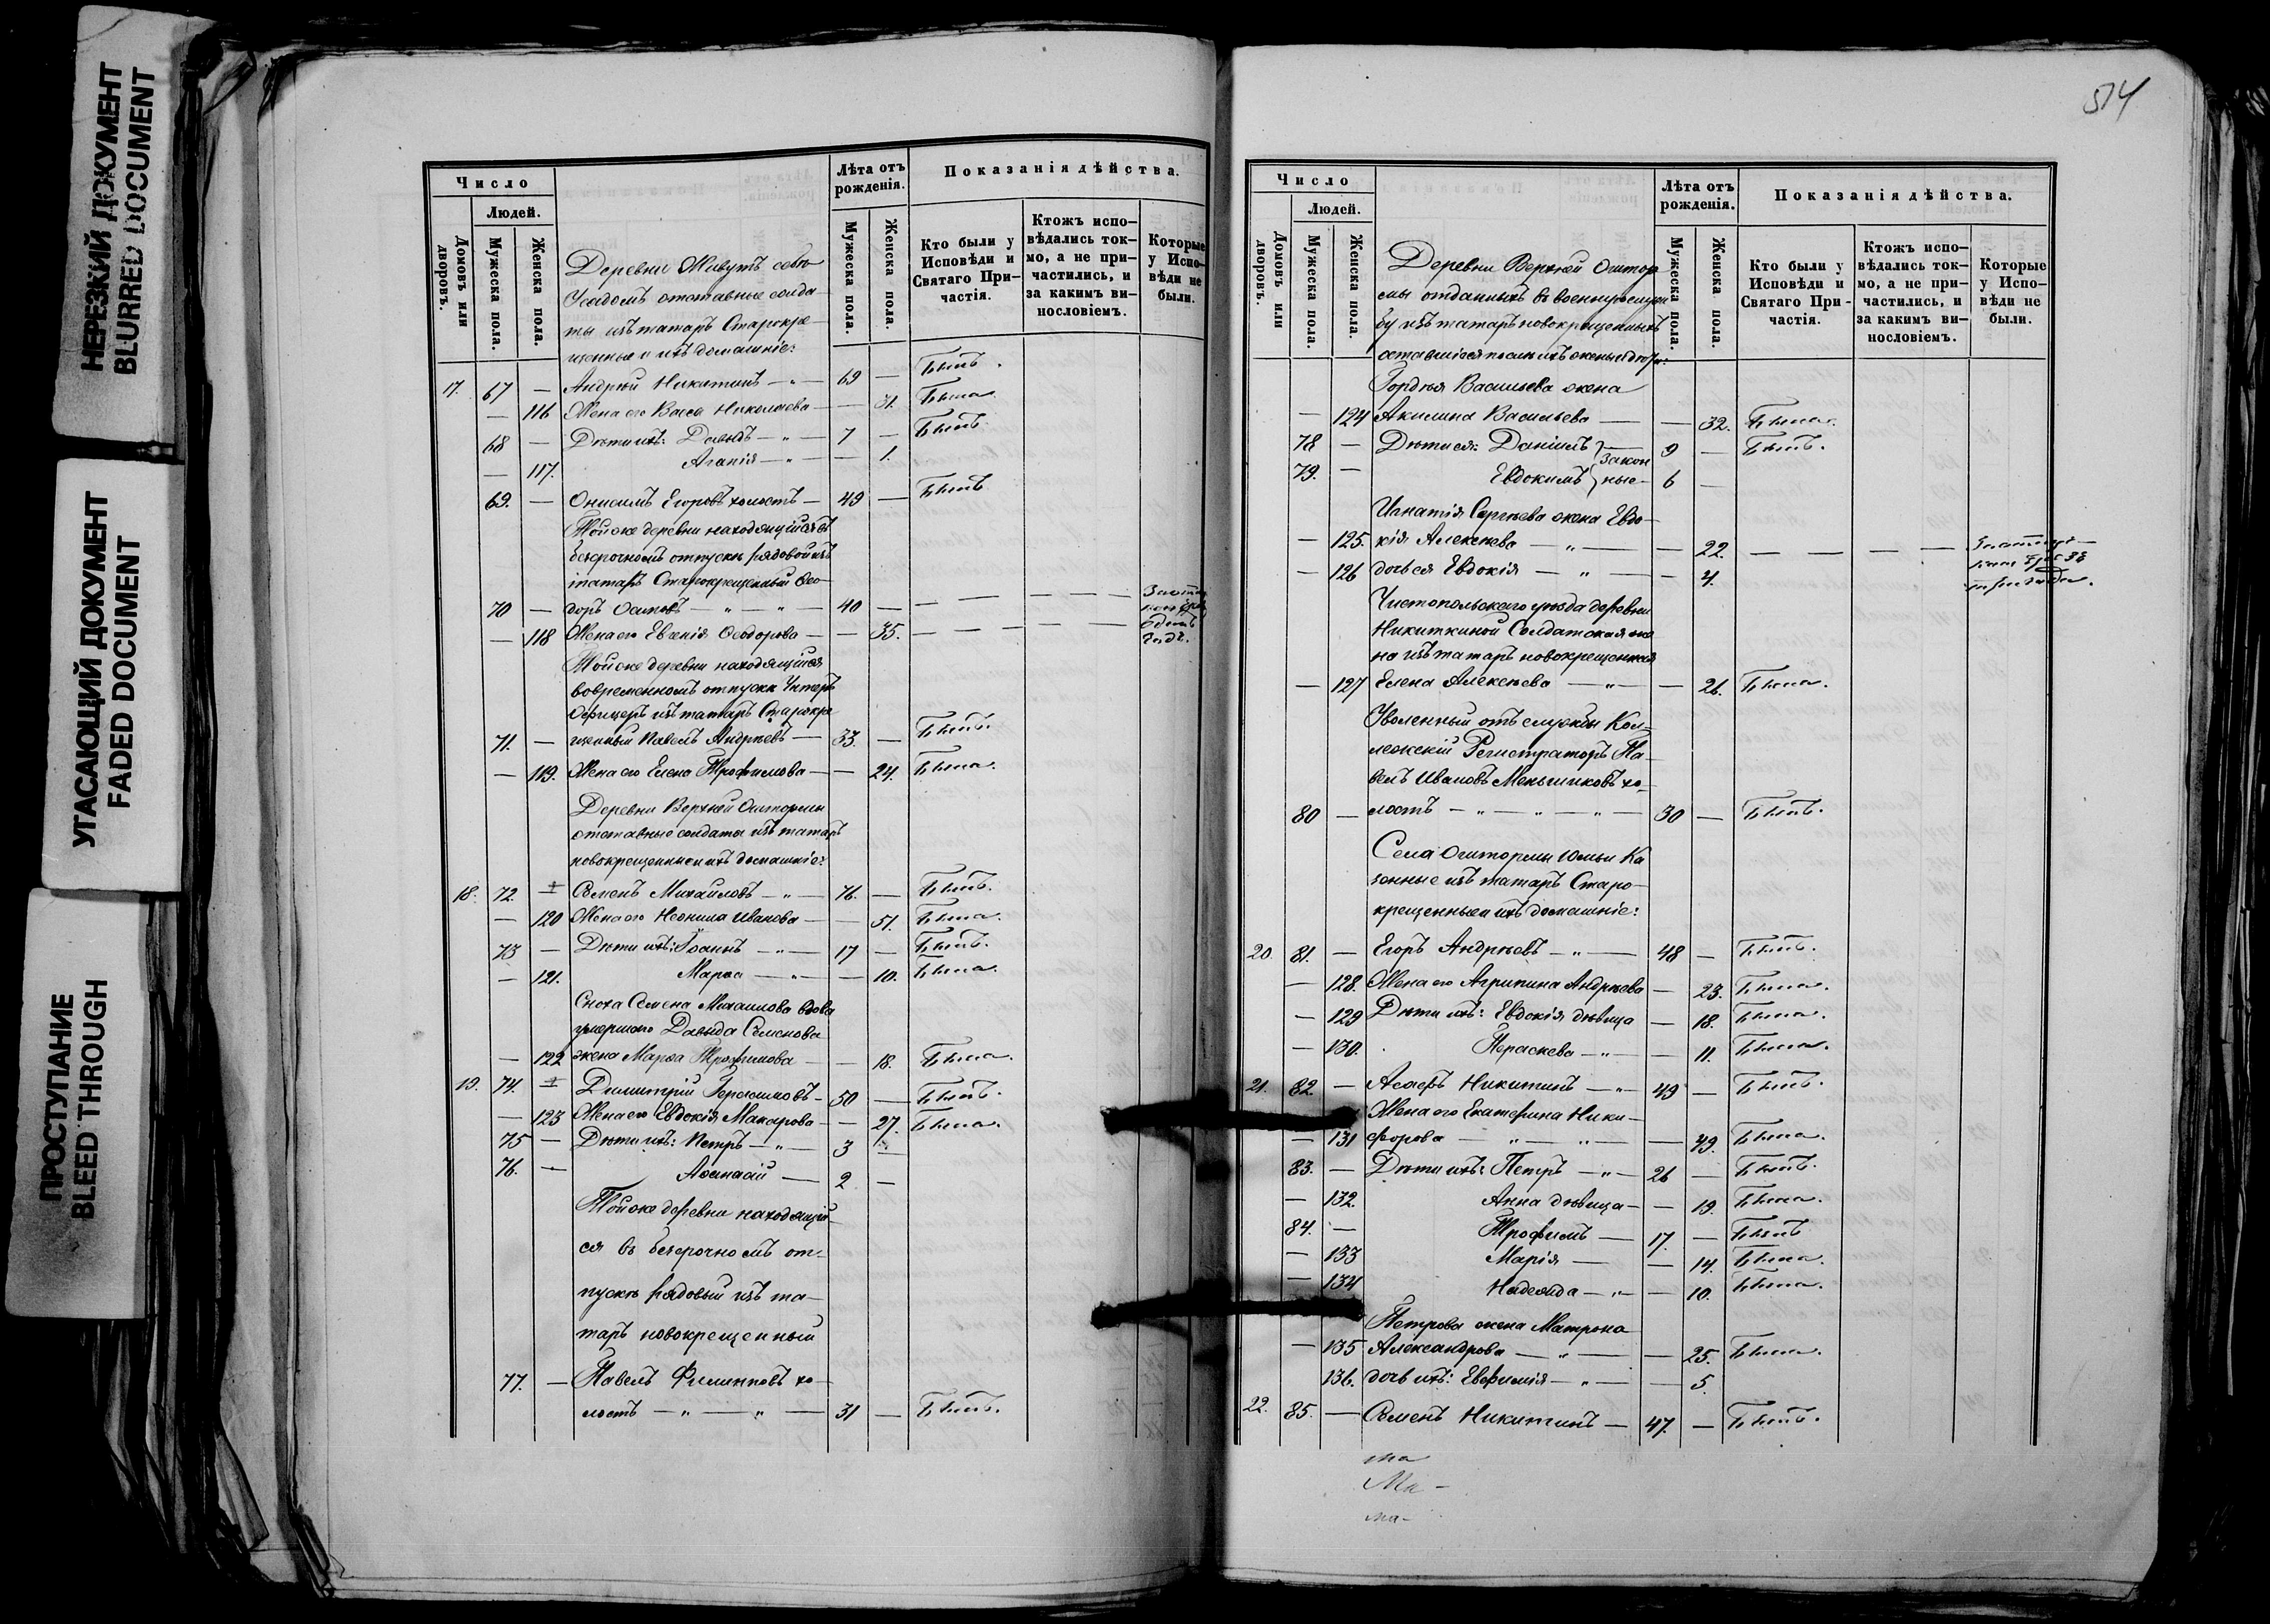 НЕРЕЗКИЙ ДОКУМЕНТ
BLURRED DOCUMENT
УГАСАЮЩИЙ ДОКУМЕНТ
FADED DOCUMENT
ПРОСТУПАНИЕ
BLEED THROUGH
Число
Людей.
Домовъ или дворовъ.
Мужеска пола.
Женска пола.
Лѣта отъ рожденія.
Мужеска пола.
Женска пола.
Показанія дѣйства.
Кто были у Исповѣди и Святаго При-частія.
Ктожъ испо-вѣдались ток-мо, а не при-частились, и за какимъ ви-нословіемъ.
Которые у Испо-вѣди не были.
Деревни
отставные солда-
ты изъ татаръ Старокре-
щенные и ихъ домашніе:
17. 67 — Андрей Никитинъ — „ — 69 — Былъ.
— 116 Жена его Васса Николаева — — 31. Была.
68 — Дѣти ихъ: Давыдъ — „ — 7 — Былъ.
— 117. Агапія — „ — — 1.
69. — Онисимъ Егоровъ холостъ — 49 — Былъ
Тойже деревни находящійся въ
безсрочномъ отпуску рядовой изъ
татаръ Старокрещеный Ѳео-
70 — доръ Осиповъ — „ — „ — 40 — — — — —
— 118 Жена его Евгенія Ѳеодорова — — 35. — — — —
Одинъ
годъ.
Тойже деревни находящійся
вовременномъ отпуску Унтеръ
Офицеръ изъ татаръ Старокре
71. — щенный Павелъ Андреевъ — 33. — Былъ.
— 119. Жена его Елена Трофимова — — 24. Была.
Деревни Верхней Оштормы
отставные солдаты изъ татаръ
новокрещенные и ихъ домашніе:
18. 72. Семенъ Михайловъ — „ — 76. — Былъ.
— 120 Жена его Неонила Иванова — — 51. Была.
73 — Дѣти ихъ: Іоаннъ — „ — 17 — Былъ.
— 121. Марѳа — „ — — 10. Была.
Сноха Семена Михаилова вдова
умершаго Давыда Семенова
— 122 жена Марѳа Трофимова — — 18. Была.
19. 74. Димитрій Герасимовъ — 50 — Былъ.
— 123 Жена его Евдокія Макарова — — 27. Была.
75 — Дѣти ихъ: Петръ — „ — 3 —
76. — Аѳанасій — 2 —
Тойже деревни находящій-
ся въ безсрочномъ от-
пуску рядовый изъ та-
таръ новокрещенный
77. — Павелъ Филипповъ хо-
лостъ — „ — „ — 31 — Былъ.
514
Число
Людей.
Домовъ или дворовъ.
Мужеска пола.
Женска пола.
Лѣта отъ рожденія.
Мужеска пола.
Женска пола.
Показанія дѣйства.
Кто были у Исповѣди и Святаго При-частія.
Ктожъ испо-вѣдались ток-мо, а не при-частились, и за какимъ ви-нословіемъ.
Которые у Испо-вѣди не были.
Деревни Верхней Оштор
мы отданныхъ въ военную служ
бу изъ татаръ новокрещенныхъ
оставшіеся после ихъ жены и дѣти:
Гордѣя Васильева жена
— 124 Акилина Васильева — — 32. Была.
78 — Дѣти ея: Даніилъ } закон 9 — Былъ.
79. — Евдокимъ } ные — 6 —
Игнатія Сергѣева жена Евдо-
— 125. кія Алексѣева — „ — — 22. — — — —
— 126 дочь ея Евдокія — „ — — 4.
Чистопольскаго уѣзда деревни
Никиткиной Солдатская же
на изъ татаръ новокрещенная
— 127 Елена Алексѣева — „ — — 26. Была.
Уволенный отъ службы Кол-
лежскій Регистраторъ Па-
велъ Ивановъ Меньшиковъ хо-
80 — лостъ — „ — „ — „ — 30 — Былъ.
Села Оштормы Юмьи Ка
зенные изъ татаръ Старо-
крещенные и ихъ домашніе:
20. 81. — Егоръ Андреевъ — „ — 48 — Былъ.
— 128. Жена его Агрипина Андреева — 23. Была.
— 129 Дѣти ихъ: Евдокія дѣвица — 18. Была.
— 130. Параскева — „ — — 11. Была.
21. 82. — Асаѳъ Никитинъ — „ — 49 — Былъ.
Жена его Екатерина Ники-
— 131 форова — „ — „ — — 49. Была.
83. — Дѣти ихъ: Петръ — „ — 26 — Былъ.
— 132. Анна дѣвица — — 19. Была.
84. — Трофимъ — 17. — Былъ
— 133 Марія — — 14. Была.
— 134 Надежда — „ — — 10. Была.
Петрова жена Матрона
— 135 Александрова — „ — — 25. Была.
136. дочь ихъ: Евфимія — „ — — 5.
22. 85. — Семенъ Никитинъ — 47. — Былъ.
та
Ма-
ма-